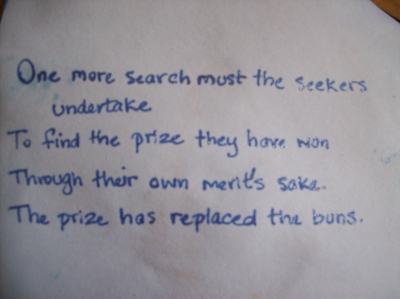 One more search must the seekers
undertake
To find the prize they have won
Through their own merit's sake.
The prize has replaced the buns.